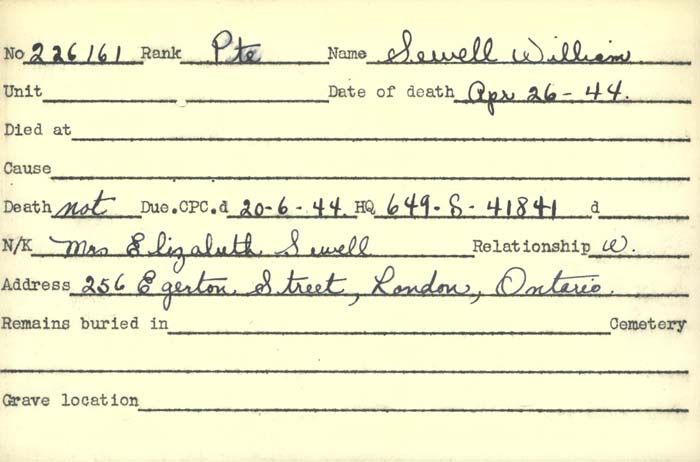 No 226161 Rank Pte Name Sewell William
Unit Date of death Apr 26-44.
Died at
Cause
Death not Due.CPC.d 20-6-44. HQ 649-S-41841 d
N/K Mrs Elizabeth Sewell Relationship W.
Address 256 Egerton Street, London, Ontario.
Remains buried in Cemetery
Grave location